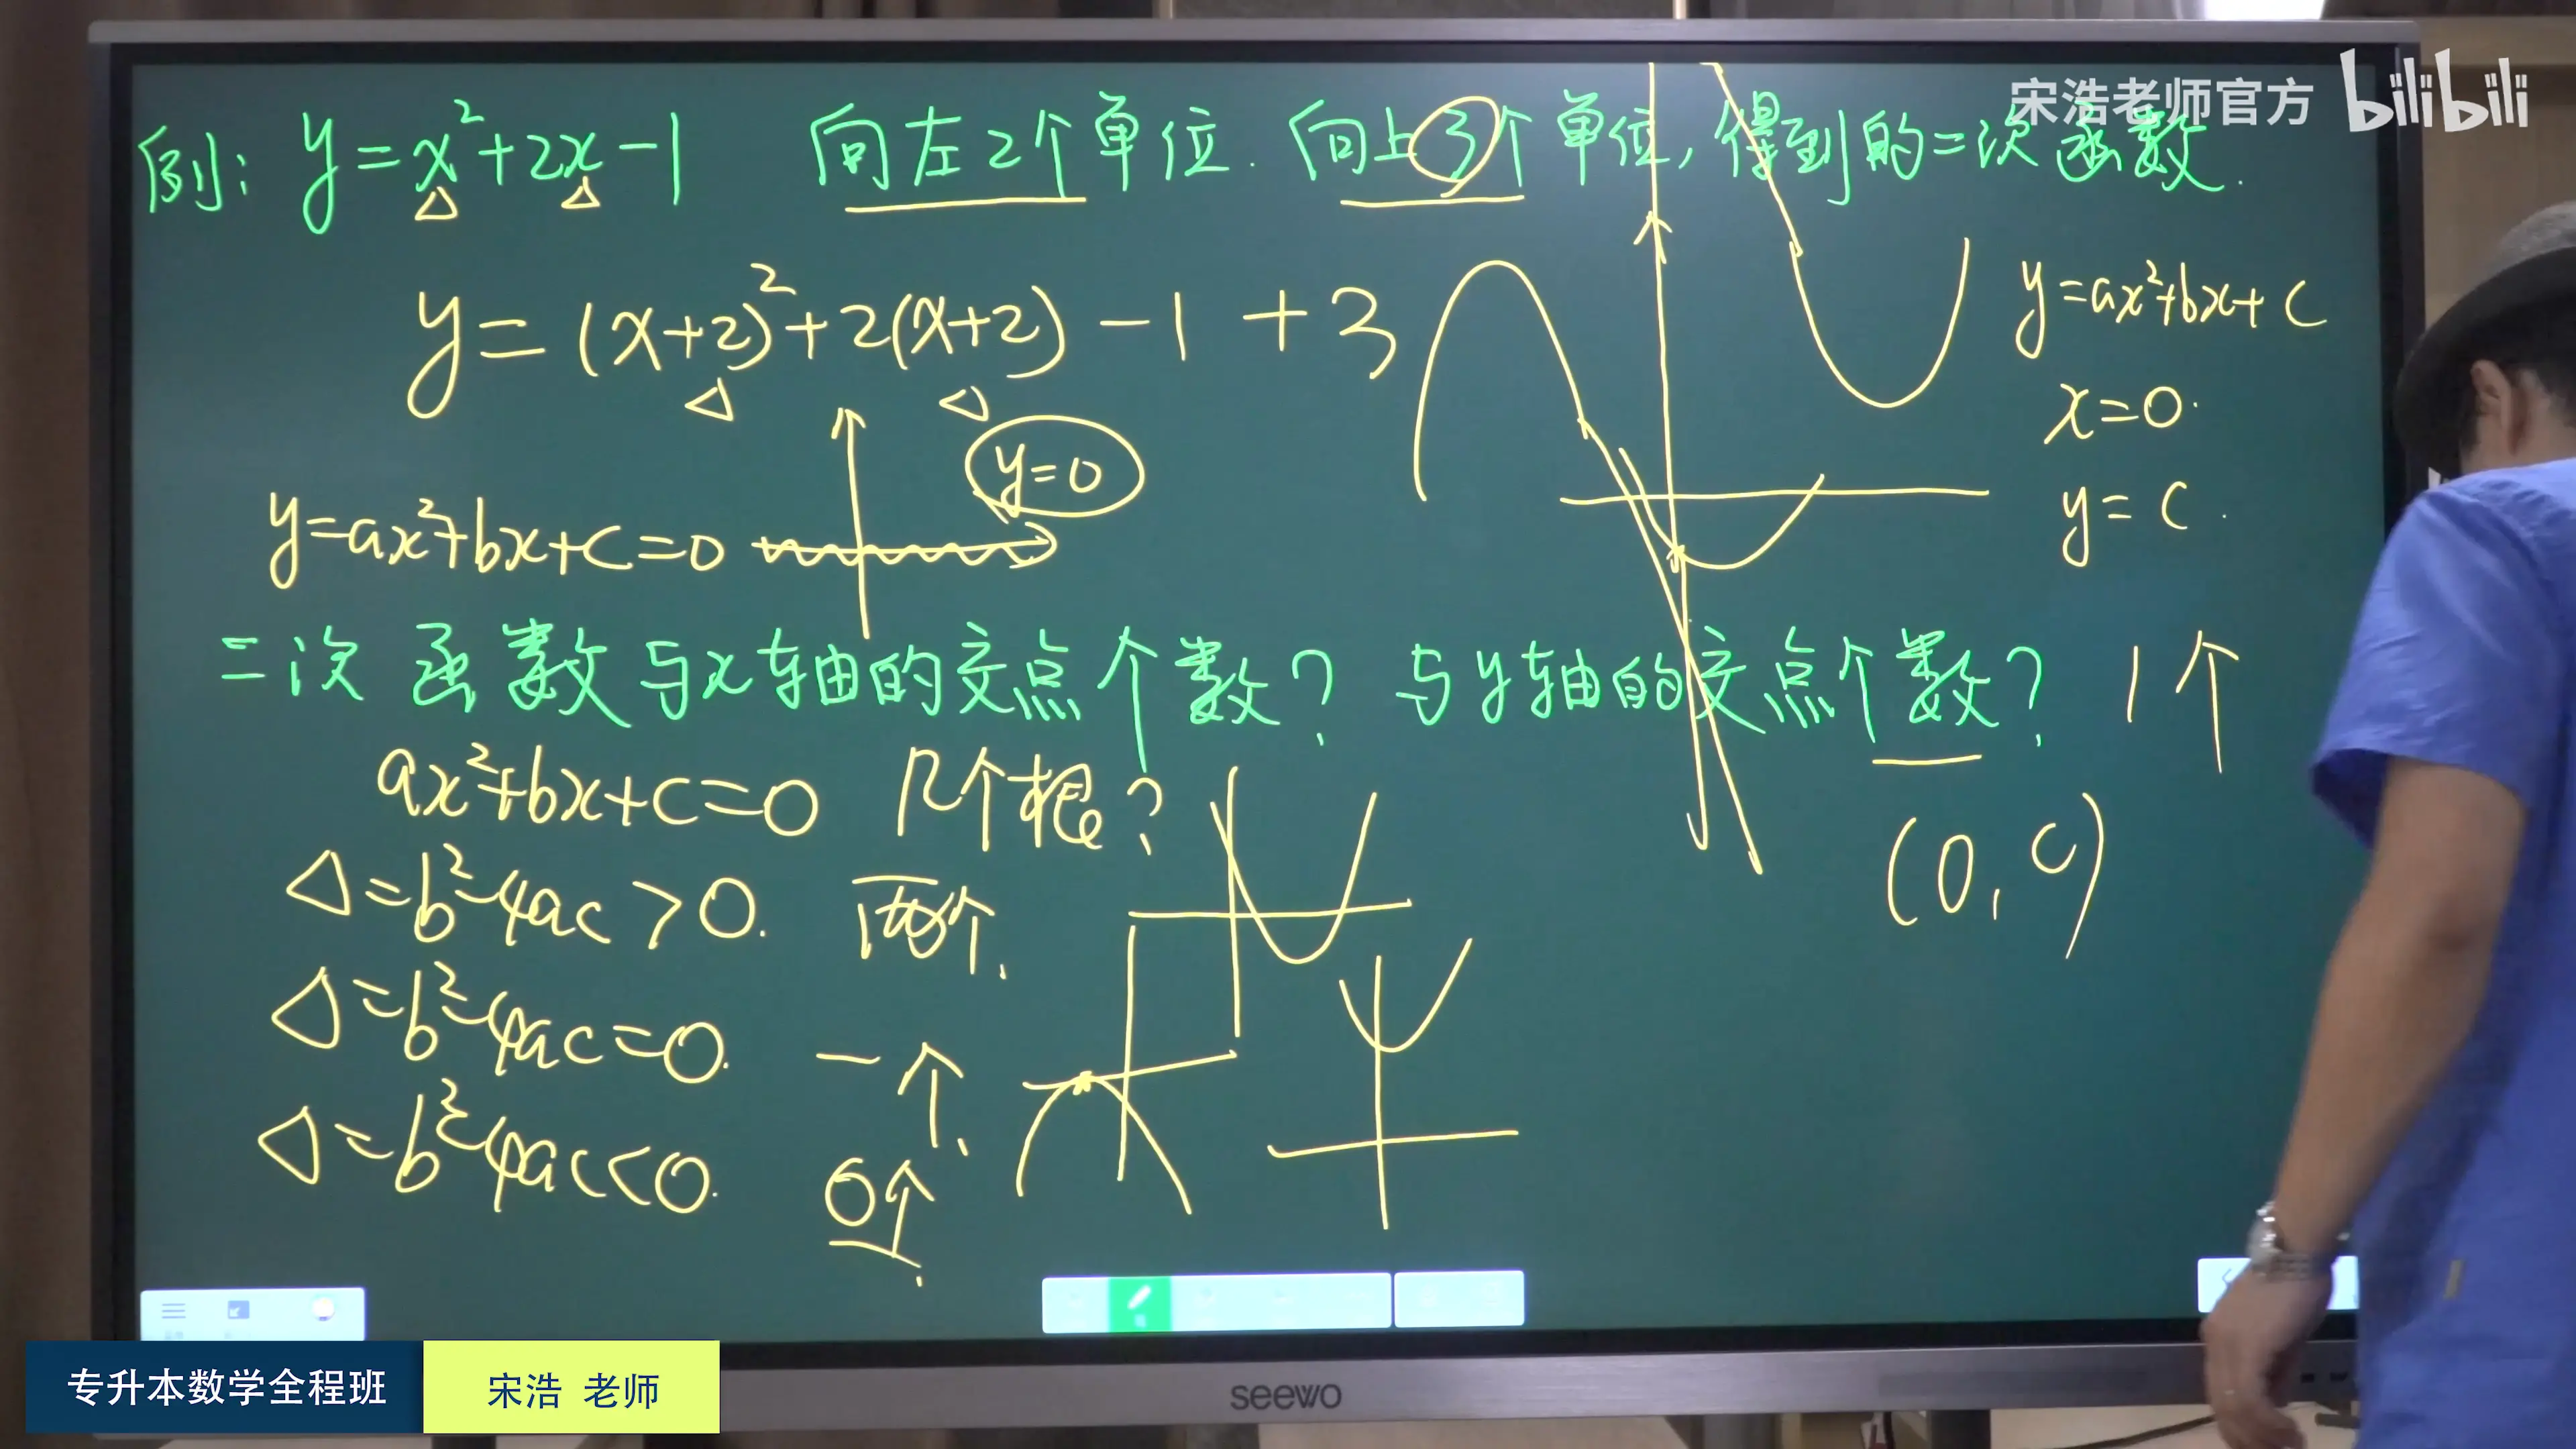 宋浩老师官方 bilibili
例: y=x²+2x-1 向左2个单位. 向上3个单位, 得到的二次函数.
△ △
y=(x+2)²+2(x+2)-1+3
△ △
y=ax²+bx+c
x=0.
y=c.
y=0
y=ax²+bx+c=0
二次函数与x轴的交点个数? 与y轴的交点个数? 1个
ax²+bx+c=0 几个根?
(0,c)
△=b²-4ac>0. 两个.
△=b²-4ac=0. 一个.
△=b²-4ac<0. 0个.
专升本数学全程班 宋浩 老师
seewo